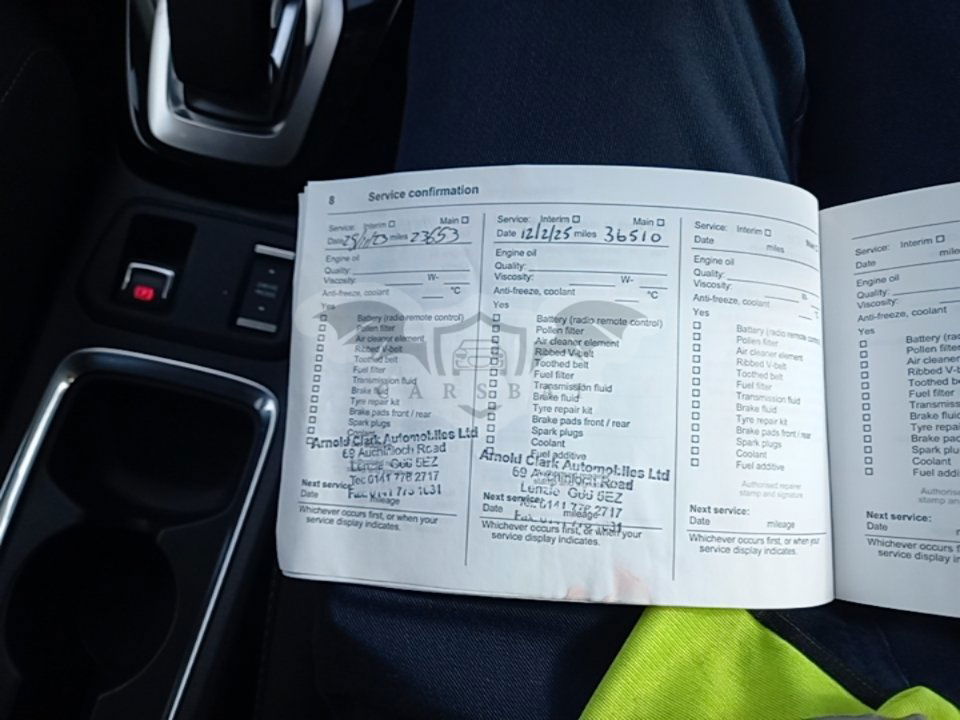 8 Service confirmation
Service: Interim Main
Date 25/1/23 miles 23653
Engine oil
Quality:
Viscosity: W-
Anti-freeze, coolant °C
Yes
Battery (radio remote control)
Pollen filter
Air cleaner element
Ribbed V-belt
Toothed belt
Fuel filter
Transmission fluid
Brake fluid
Tyre repair kit
Brake pads front / rear
Spark plugs
Coolant
Arnold Clark Automobiles Ltd
69 Auchinloch Road
Lenzie G66 5EZ
Tel: 0141 776 2717
Fax 0141 775 1031
Next service:
Date mileage
Whichever occurs first, or when your
service display indicates.
Service: Interim Main
Date 12/2/25 miles 36510
Engine oil
Quality:
Viscosity: W-
Anti-freeze, coolant °C
Yes
Battery (radio remote control)
Pollen filter
Air cleaner element
Ribbed V-belt
Toothed belt
Fuel filter
Transmission fluid
Brake fluid
Tyre repair kit
Brake pads front / rear
Spark plugs
Coolant
Fuel additive
Arnold Clark Automobiles Ltd
69 Auchinloch Road
Lenzie G66 5EZ
Tel: 0141 776 2717
Fax 0141 775 1031
Next service:
Date mileage
Whichever occurs first, or when your
service display indicates.
Service: Interim
Date miles
Engine oil
Quality:
Viscosity:
Anti-freeze, coolant
Yes
Battery (radio remote
Pollen filter
Air cleaner element
Ribbed V-belt
Toothed belt
Fuel filter
Transmission fluid
Brake fluid
Tyre repair kit
Brake pads front / rear
Spark plugs
Coolant
Fuel additive
Authorised repairer
stamp and signature
Next service:
Date mileage
Whichever occurs first, or when your
service display indicates.
Service: Interim
Date
Engine oil
Quality:
Viscosity:
Anti-freeze, coolant
Yes
Battery
Pollen filter
Air cleaner
Ribbed
Toothed
Fuel filter
Brake fluid
Tyre
Brake
Spark
Coolant
Fuel
Next service:
Date
Whichever occurs
service display
CARSB